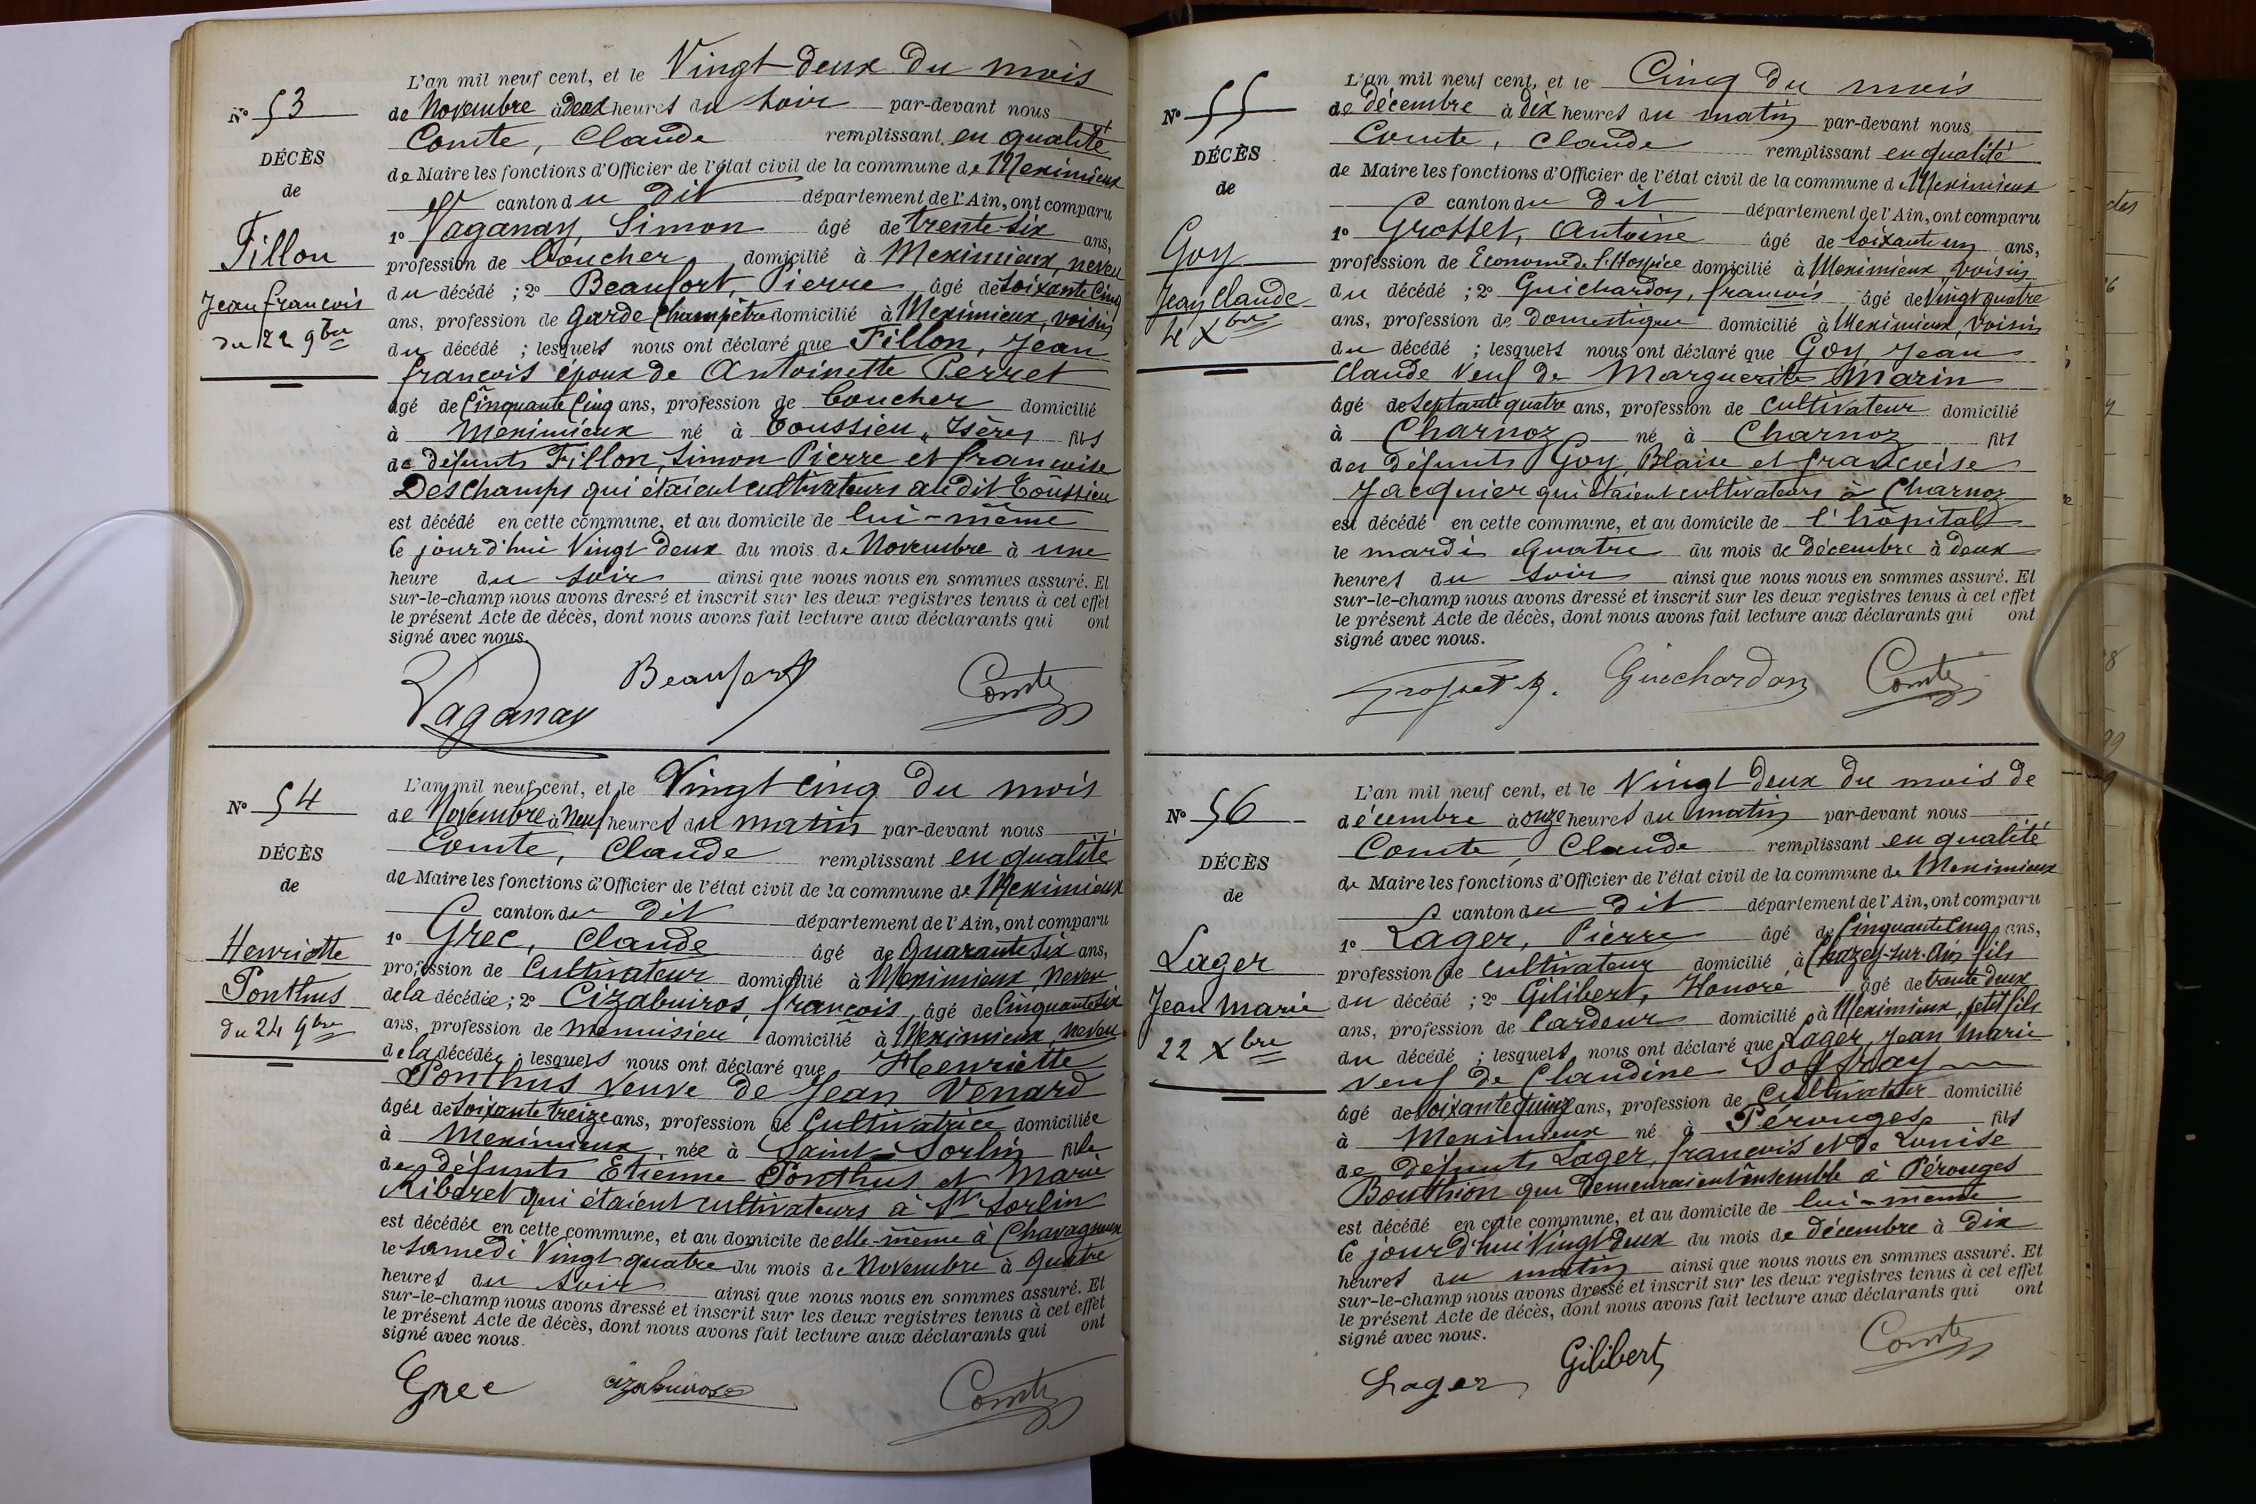 N° 53
DÉCÈS
de
Fillon
Jean françois
du 22 9bre
L'an mil neuf cent, et le Vingt deux du mois
de Novembre à deux heures du soir par-devant nous
Comte, Claude remplissant en qualité
de Maire les fonctions d'Officier de l'état civil de la commune de Meximieux
canton du dit département de l'Ain, ont comparu
1° Vaganay, Simon âgé de trente six ans,
profession de boucher domicilié à Meximieux, neveu
du décédé ; 2° Beaufort, Pierre âgé de soixante cinq
ans, profession de garde champêtre domicilié à Meximieux, voisin
du décédé ; lesquels nous ont déclaré que Fillon, Jean
françois époux de Antoinette Perret
âgé de Cinquante Cinq ans, profession de boucher domicilié
à Meximieux né à Toussieu, Isère, fils
de défunts Fillon, Simon Pierre et françoise
Deschamps qui étaient cultivateurs au dit Toussieu
est décédé en cette commune, et au domicile de lui-même
le jourd'hui Vingt deux du mois de Novembre à une
heure du soir ainsi que nous nous en sommes assuré. Et
sur-le-champ nous avons dressé et inscrit sur les deux registres tenus à cet effet
le présent Acte de décès, dont nous avons fait lecture aux déclarants qui ont
signé avec nous.
Vaganay Beaufort Comte
N° 54
DÉCÈS
de
Henriette
Ponthus
du 24 9bre
L'an mil neuf cent, et le Vingt cinq du mois
de Novembre à Neuf heures du matin par-devant nous
Comte, Claude remplissant en qualité
de Maire les fonctions d'Officier de l'état civil de la commune de Meximieux
canton du dit département de l'Ain, ont comparu
1° Grec, Claude âgé de quarante six ans,
profession de Cultivateur domicilié à Meximieux, neveu
de la décédée ; 2° Cizabuiros, françois âgé de Cinquante six
ans, profession de menuisier domicilié à Meximieux, neveu
de la décédée ; lesquels nous ont déclaré que Henriette
Ponthus veuve de Jean Venard
âgée de soixante treize ans, profession de Cultivatrice domiciliée
à Meximieux née à Saint-Sorlin fille
de défunts Etienne Ponthus et Marie
Riberet qui étaient cultivateurs à St Sorlin
est décédée en cette commune, et au domicile de elle-même à Chavagneux
le samedi Vingt quatre du mois de Novembre à quatre
heures du soir ainsi que nous nous en sommes assuré. Et
sur-le-champ nous avons dressé et inscrit sur les deux registres tenus à cet effet
le présent Acte de décès, dont nous avons fait lecture aux déclarants qui ont
signé avec nous.
Grec Cizabuiros Comte
N° 55
DÉCÈS
de
Goy
Jean Claude
4 Xbre
L'an mil neuf cent, et le Cinq du mois
de décembre à dix heures du matin par-devant nous
Comte, Claude remplissant en qualité
de Maire les fonctions d'Officier de l'état civil de la commune de Meximieux
canton du dit département de l'Ain, ont comparu
1° Grosset, Antoine âgé de soixante un ans,
profession de Econome de l'Hospice domicilié à Meximieux, voisin
du décédé ; 2° Guichardon, françois âgé de Vingt quatre
ans, profession de domestique domicilié à Meximieux, voisin
du décédé ; lesquels nous ont déclaré que Goy, Jean
Claude veuf de Marguerite Marin
âgé de septante quatre ans, profession de cultivateur domicilié
à Charnoz né à Charnoz fils
des défunts Goy, Blaise et françoise
Jacquier qui étaient cultivateurs à Charnoz
est décédé en cette commune, et au domicile de l'hôpital
le mardi quatre du mois de décembre à deux
heures du soir ainsi que nous nous en sommes assuré. Et
sur-le-champ nous avons dressé et inscrit sur les deux registres tenus à cet effet
le présent Acte de décès, dont nous avons fait lecture aux déclarants qui ont
signé avec nous.
Grosset A. Guichardon Comte
N° 56
DÉCÈS
de
Lager
Jean Marie
22 Xbre
L'an mil neuf cent, et le Vingt deux du mois de
décembre à onze heures du matin par-devant nous
Comte, Claude remplissant en qualité
de Maire les fonctions d'Officier de l'état civil de la commune de Meximieux
canton du dit département de l'Ain, ont comparu
1° Lager, Pierre âgé de Cinquante Cinq ans,
profession de cultivateur domicilié à Chazey-sur-Ain fils
du décédé ; 2° Gilibert, Honoré âgé de trente deux
ans, profession de Cardeur domicilié à Meximieux, petit fils
du décédé ; lesquels nous ont déclaré que Lager, Jean Marie
veuf de Claudine Soffray
âgé de soixante quinze ans, profession de Cultivateur domicilié
à Meximieux né à Pérouges fils
de défunts Lager, françois et de Louise
Bouthion qui demeuraient ensemble à Pérouges
est décédé en cette commune, et au domicile de lui-même
le jourd'hui Vingt deux du mois de décembre à dix
heures du matin ainsi que nous nous en sommes assuré. Et
sur-le-champ nous avons dressé et inscrit sur les deux registres tenus à cet effet
le présent Acte de décès, dont nous avons fait lecture aux déclarants qui ont
signé avec nous.
Lager Gilibert Comte